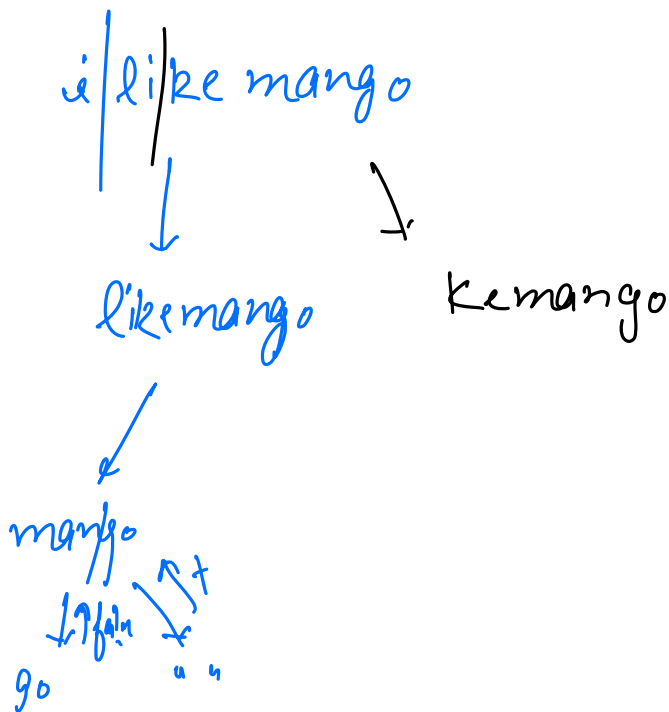 i like mango
likemango kemango
mango
fain t
go " "